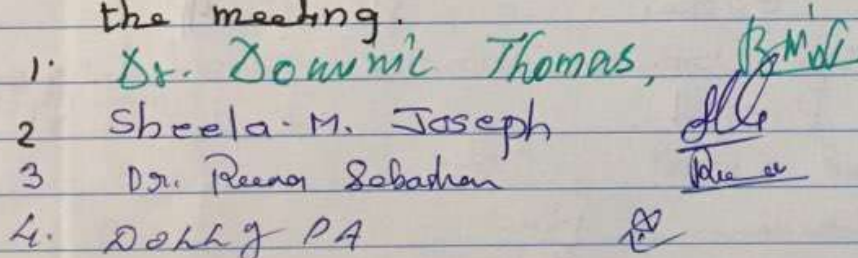 the meeting.
1. Dr. Dominic Thomas,
2 Sheela. M. Joseph
3 Dr. Reena Sebastian
4. DOLLY PA